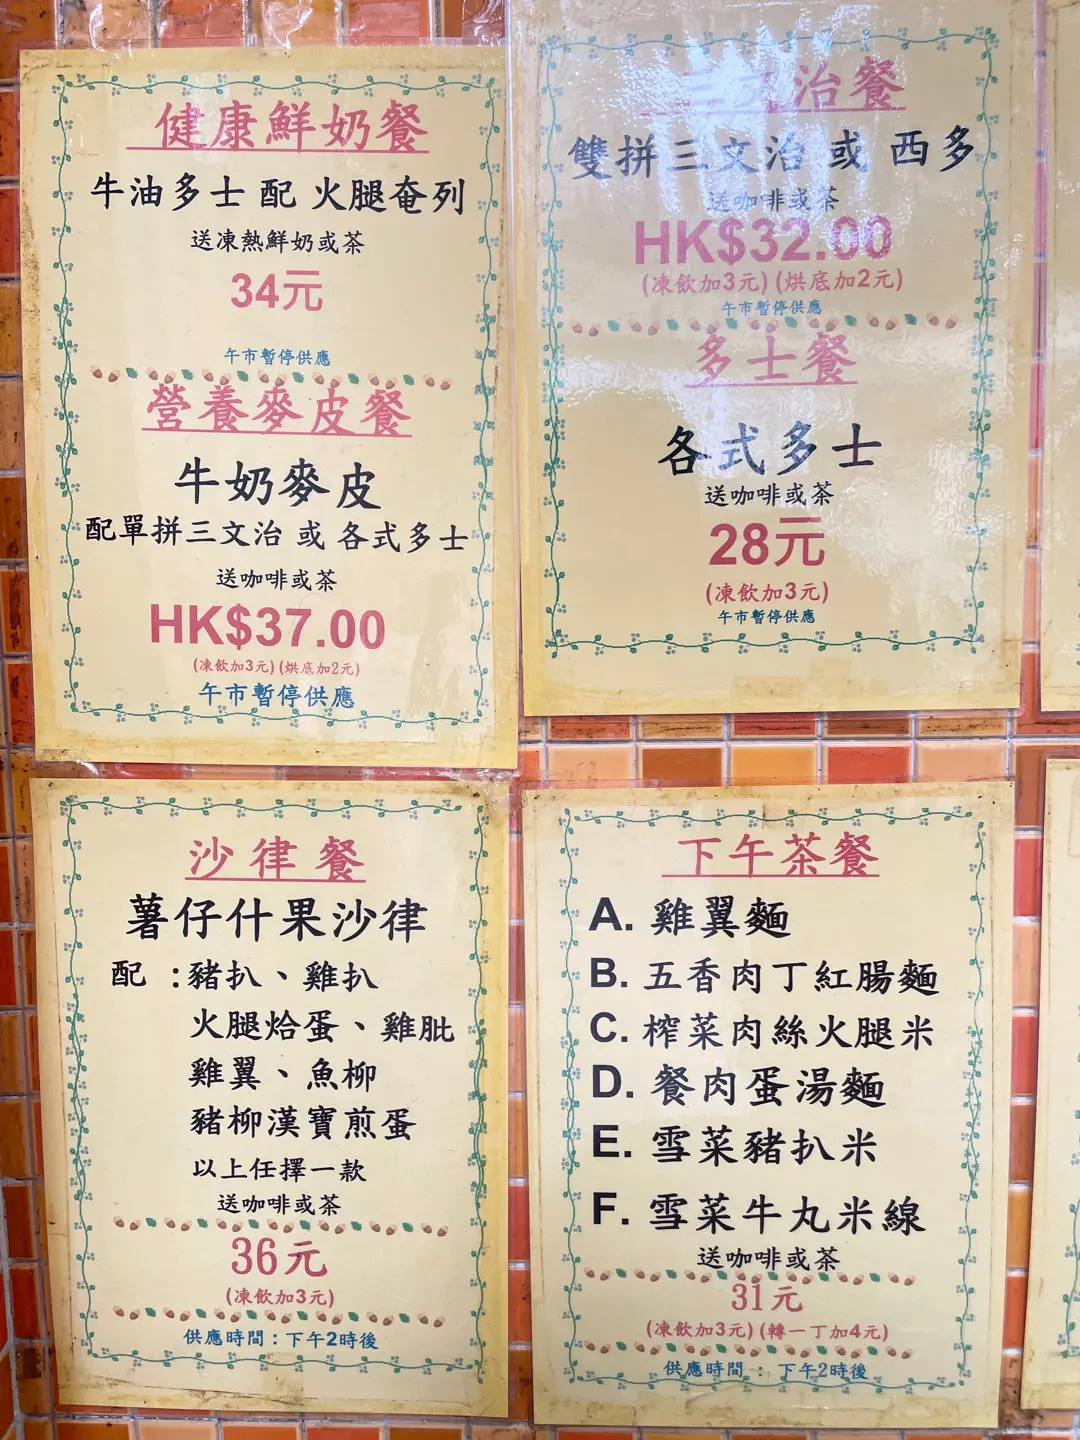 健康鮮奶餐
牛油多士 配 火腿奄列
送凍熱鮮奶或茶
34元
午市暫停供應
營養麥皮餐
牛奶麥皮
配單拼三文治 或 各式多士
送咖啡或茶
HK$37.00
(凍飲加3元) (烘底加2元)
午市暫停供應
三文治餐
雙拼三文治 或 西多
送咖啡或茶
HK$32.00
(凍飲加3元) (烘底加2元)
午市暫停供應
多士餐
各式多士
送咖啡或茶
28元
(凍飲加3元)
午市暫停供應
沙律餐
薯仔什果沙律
配 :豬扒、雞扒
火腿烚蛋、雞肶
雞翼、魚柳
豬柳漢寶煎蛋
以上任擇一款
送咖啡或茶
36元
(凍飲加3元)
供應時間：下午2時後
下午茶餐
A. 雞翼麵
B. 五香肉丁紅腸麵
C. 榨菜肉絲火腿米
D. 餐肉蛋湯麵
E. 雪菜豬扒米
F. 雪菜牛丸米線
送咖啡或茶
31元
(凍飲加3元) (轉一丁加4元)
供應時間 ： 下午2時後